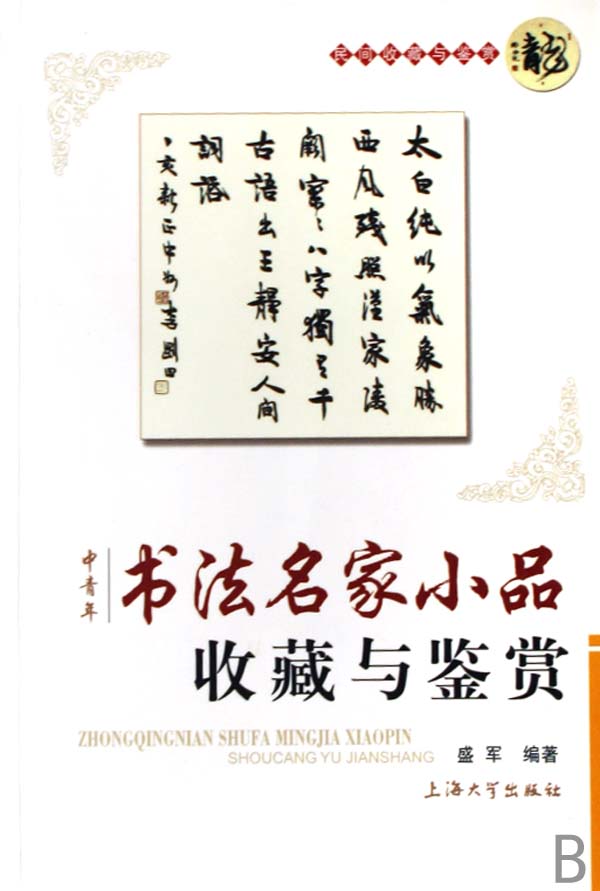 民间收藏与鉴赏
太白純以氣象勝
西风殘照漢家陵
闕寥〻八字獨有千
古語出王靜安人間
詞話
丁亥新正中州李剛田
中青年
书法名家小品
收藏与鉴赏
ZHONGQINGNIAN SHUFA MINGJIA XIAOPIN
SHOUCANG YU JIANSHANG
盛军 编著
上海大学出版社
B